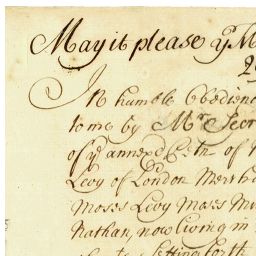 May it please yᵉ M
In humble Obedienc
to me by Mr. Secr
of yᵉ annexd Petn. of
Levy of London Merch
Moses Levy Moses M
Nathan, now living in
setting forth